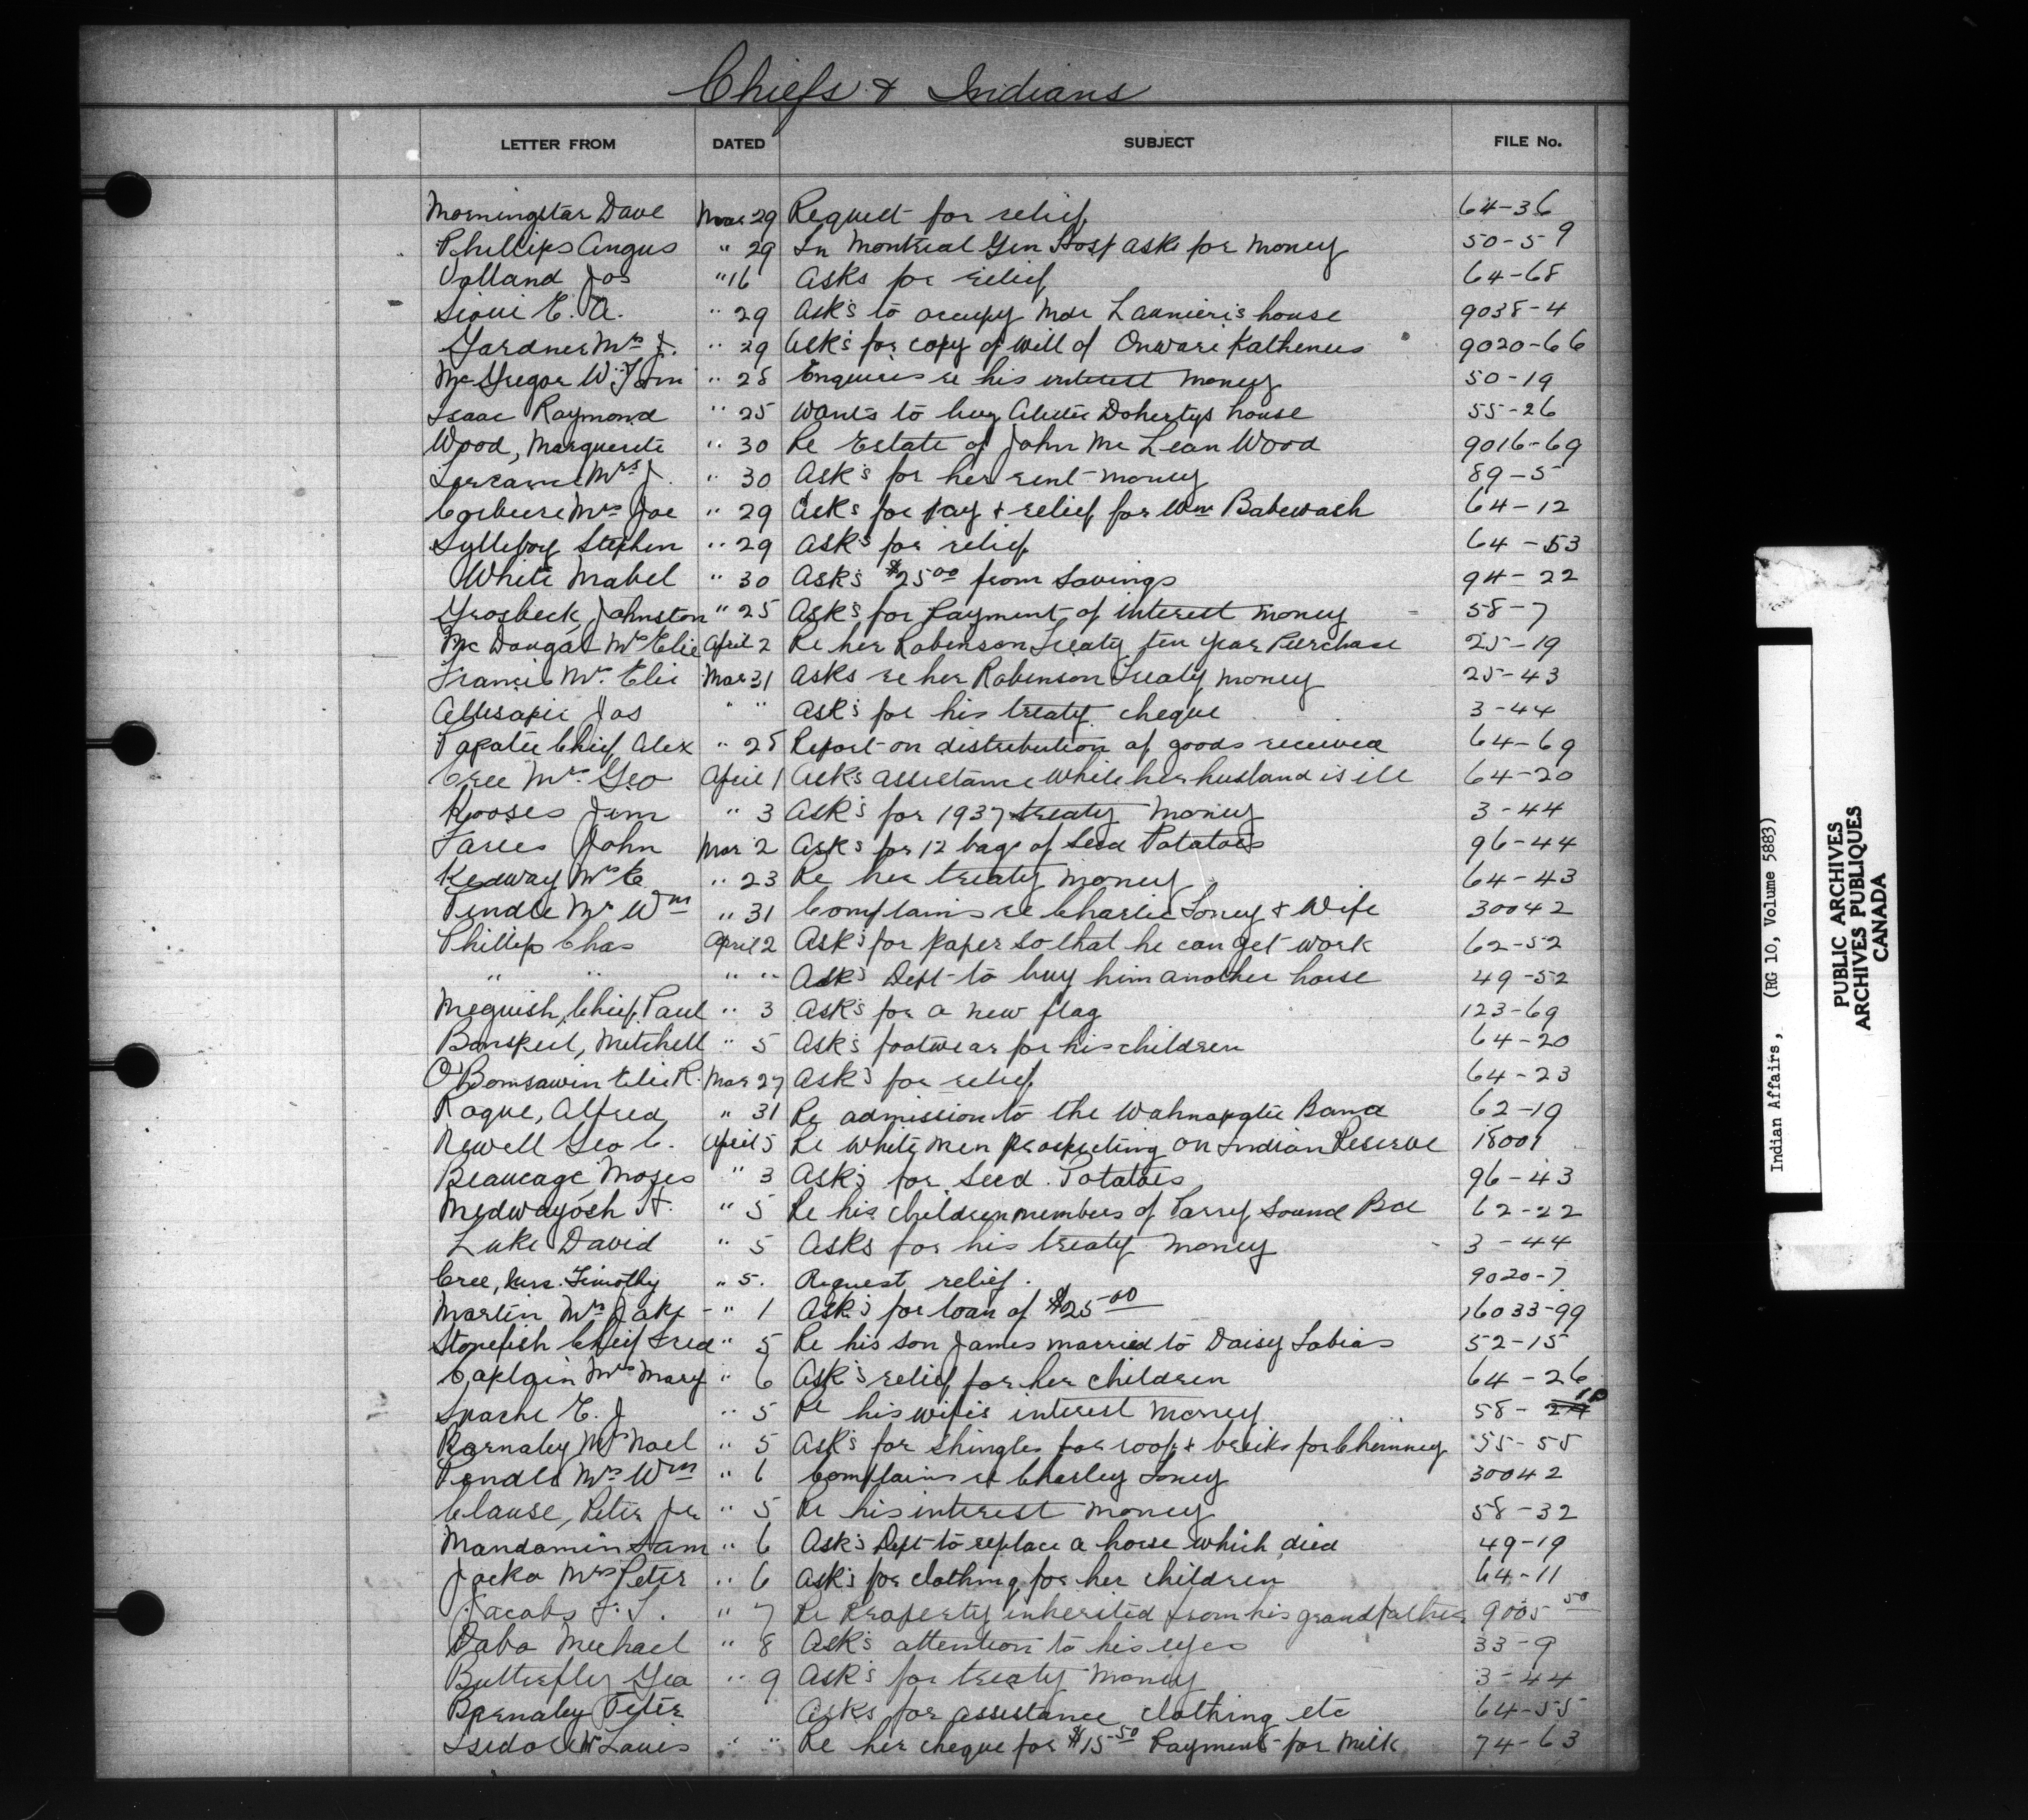 Chiefs & Indians
LETTER FROM DATED SUBJECT FILE No.
Morningstar Dave Mar 29 Request for relief 64-36
Phillips Angus " 29 In Montreal Gen Hosp asks for money 50-59
Volland Jos " 16 Asks for relief 64-68
Sioui E. A. " 29 Ask's to occupy Mde Launier's house 9038-4
Gardner Mrs J. " 29 Ask's for copy of will of Onwari Kathenies 9020-66
McGregor W. Tom " 28 Enquires re his interest money 50-19
Isaac Raymond " 25 Wants to buy Dohertys house 55-26
Wood, Marguerite " 30 Re Estate of John McLean Wood 9016-69
Mrs J. " 30 Ask's for her rent money 89-5
Corbiere Mrs Joe " 29 Ask's for pay & relief for Wm Babewash 64-12
Sylleboy Stephen " 29 Ask's for relief 64-53
White Mabel " 30 Ask's $2500 from savings 94-22
Grosbeck, Johnston " 25 Ask's for payment of interest money 58-7
McDougal Mrs Elie April 2 Re her Robinson Treaty ten year Purchase 25-19
Francis Mrs Eli Mar 31 Asks re her Robinson Treaty money 25-43
Jos " " Ask's for his treaty cheque 3-44
Papatie Chief Alex " 28 Report on distribution of goods received 64-69
Cree Mrs Geo April 1 Ask's assistance while her husband is ill 64-20
Kooses Jim " 3 Ask's for 1937 treaty money 3-44
Faries John Mar 2 Ask's for 12 bags of Seed Potatoes 96-44
Kedway Mrs E " 23 Re her treaty money 64-43
Pendle Mrs Wm " 31 Complains re Charlie Loney & Wife 30042
Phillips Chas April 2 Ask's for paper so that he can get work 62-52
" " " " Ask's Dept to buy him another horse 49-52
Meguish, Chief Paul " 3 Ask's for a new flag 123-69
Bonspeil, Mitchell " 5 Ask's footwear for his children 64-20
O'Bomsawin Elie R. Mar 27 Ask's for relief 64-23
Roque, Alfred " 31 Re admission to the Wahnapatie Band 62-19
Newell Geo C. April 5 Re White men prospecting on Indian Reserve 18001
Beaucage Moses " 3 Ask's for Seed Potatoes 96-43
Medwayosh H. " 5 Re his children members of Parry Sound Bd 62-22
Luke David " 5 Asks for his treaty money 3-44
Cree, Mrs. Timothy " 5. Request relief. 9020-7
Martin Mrs Jake " 1 Ask's for loan of $2500 16033-99
Stonefish Chief Fred " 5 Re his son James married to Daisy Tobias 52-15
Caplain Mrs Mary " 6 Ask's relief for her children 64-26
Spache E. J " 5 Re his wife's interest money 58-10
Barnaby Mrs Noel " 5 Ask's for shingles for roof & bricks for Chimney 55-55
Pendle Mrs Wm " 6 Complains re Charley Loney 30042
Clause, Peter Jr " 5 Re his interest money 58-32
Mandamin Sam " 6 Ask's Dept to replace a horse which died 49-19
Jocko Mrs Peter " 6 Ask's for clothing for her children 64-11
Jacobs F. L. " 7 Re Property inherited from his grandfather 9005 50
Dabo Michael " 8 Ask's attention to his eyes 33-9
Butterfly Geo " 9 Ask's for treaty money 3-44
Barnaby Peter Asks for assistance clothing etc 64-55
Isidore Mrs Louis " " Re her cheque for $15.50 Payment for Milk 74-63
Indian Affairs, (RG 10, Volume 5883)
PUBLIC ARCHIVES
ARCHIVES PUBLIQUES
CANADA